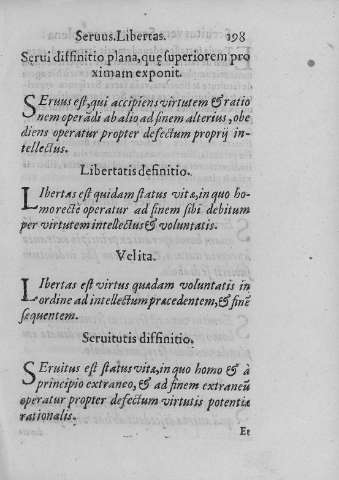 Seruus. Libertas. 198
Serui diffinitio plana, quę superiorem pro
ximam exponit.
SEruus est, qui accipiens virtutem & ratio
nem operādi ab alio ad finem alterius, obe
diens operatur propter defectum proprij in-
tellectus.
Libertatis definitio.
LIbertas est quidam status vitæ, in quo ho-
mo rectè operatur ad finem sibi debitum
per virtutem intellectus & voluntatis.
Vel ita.
LIbertas est virtus quædam voluntatis in
ordine ad intellectum præcedentem, & finē
sequentem.
Seruitutis diffinitio.
SEruitus est status vitæ, in quo homo & à
principio extraneo, & ad finem extraneū
operatur propter defectum virtutis potentiæ
rationalis.
Et